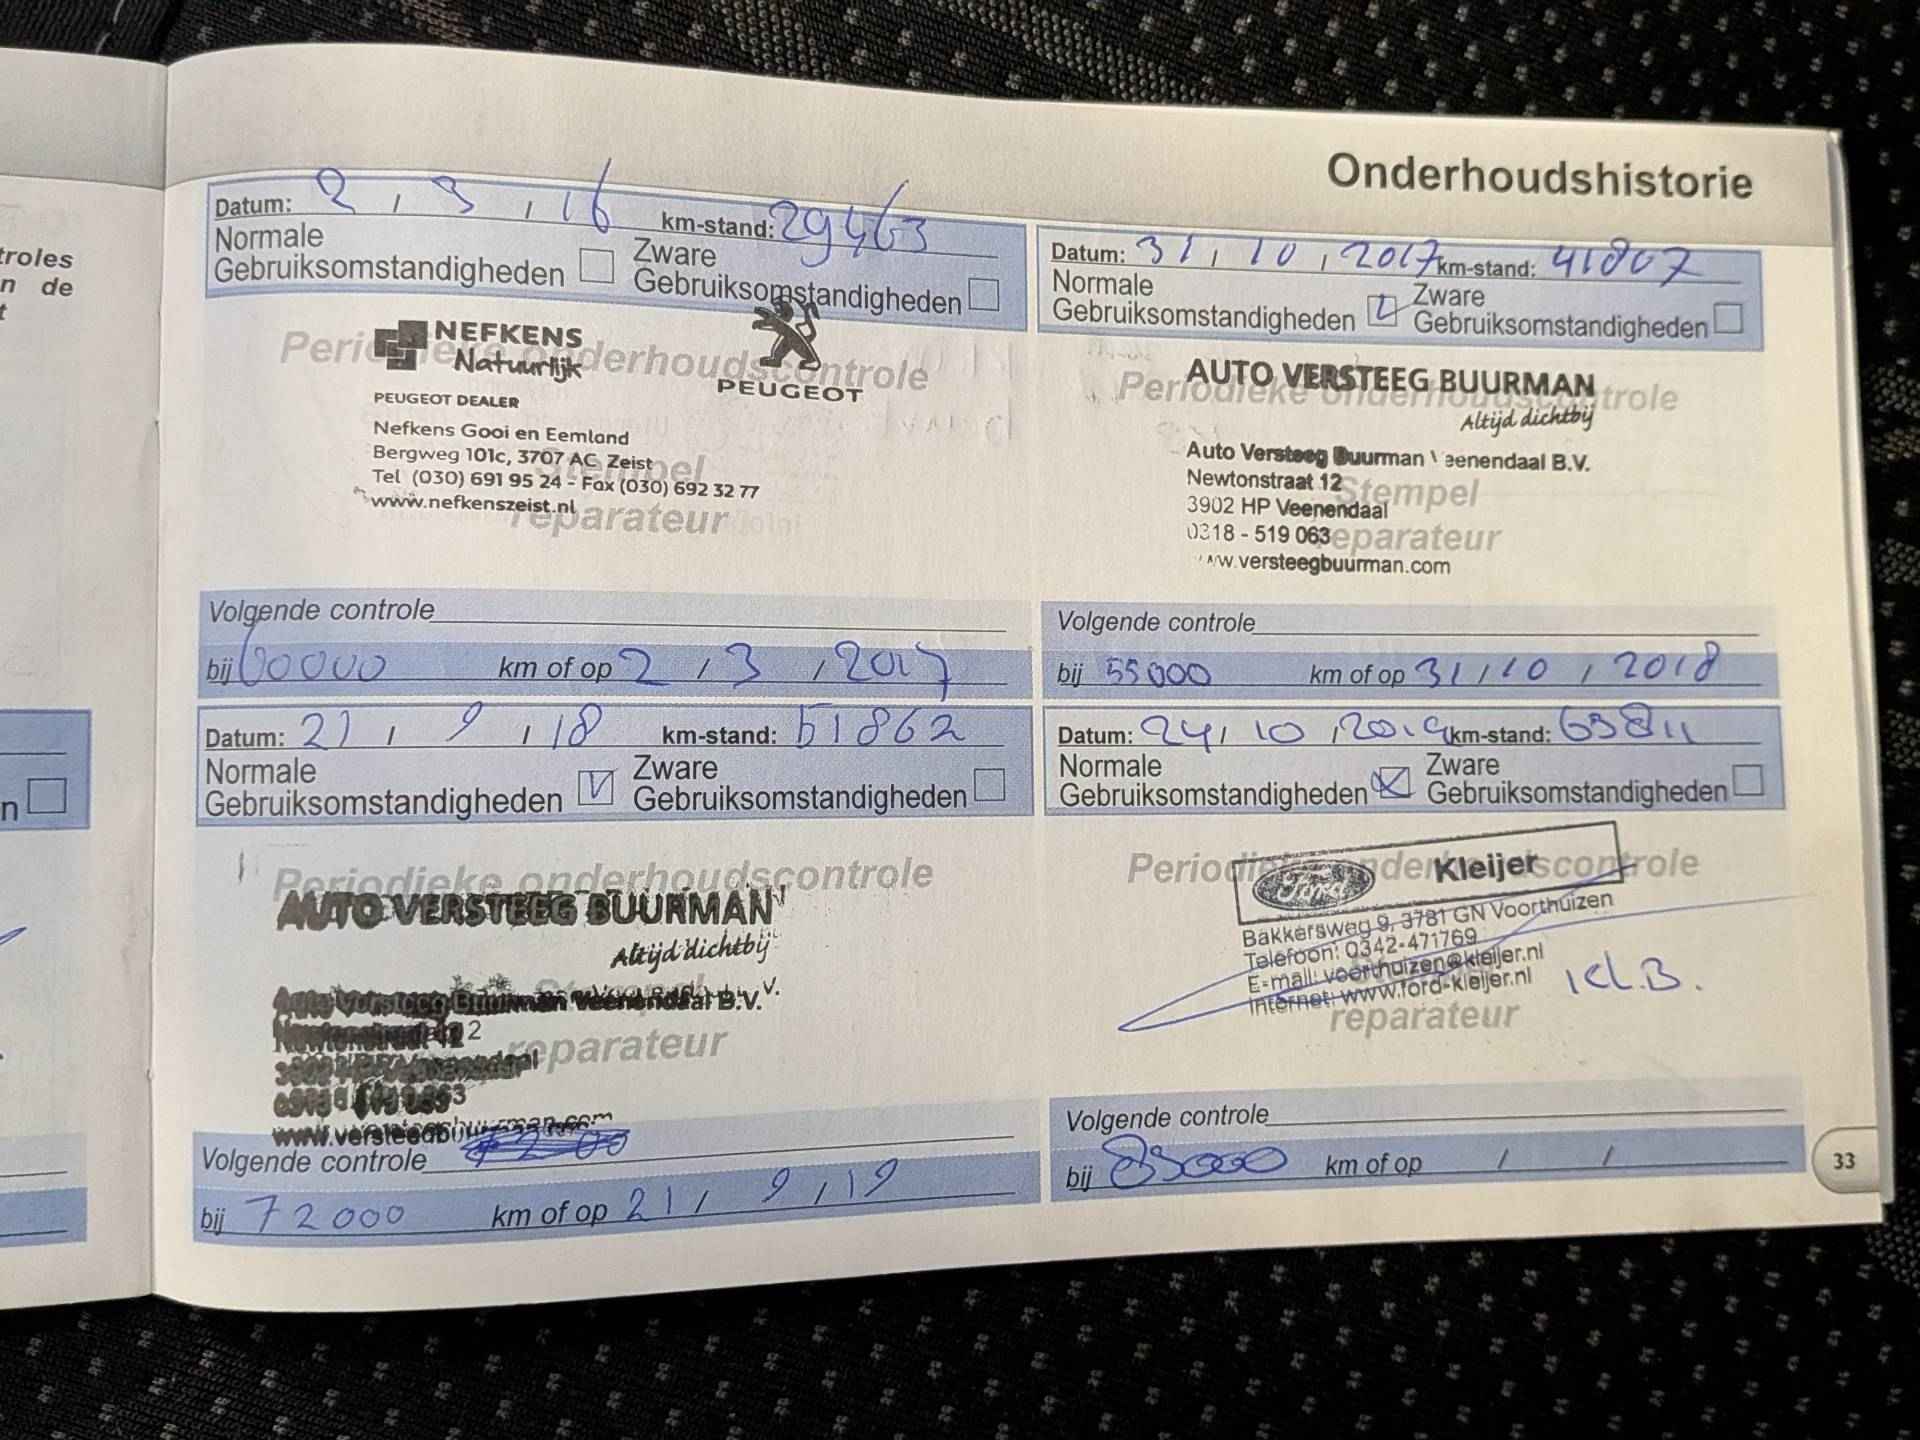 Onderhoudshistorie
troles
n de
t
n
Datum: 2 / 3 / 16 km-stand: 29463
Normale Zware
Gebruiksomstandigheden Gebruiksomstandigheden
NEFKENS
Natuurlijk
PEUGEOT
Periodieke onderhoudscontrole
PEUGEOT DEALER
Nefkens Gooi en Eemland
Bergweg 101c, 3707 AC Zeist
Tel (030) 691 95 24 - Fax (030) 692 32 77
www.nefkenszeist.nl
Stempel
reparateur
Volgende controle
bij 60000 km of op 2 / 3 / 2017
Datum: 31 / 10 / 2017 km-stand: 41807
Normale Zware
Gebruiksomstandigheden Gebruiksomstandigheden
AUTO VERSTEEG BUURMAN
Periodieke onderhoudscontrole
Altijd dichtbij
Auto Versteeg Buurman Veenendaal B.V.
Newtonstraat 12
Stempel
3902 HP Veenendaal
0318 - 519 063
reparateur
www.versteegbuurman.com
Volgende controle
bij 55000 km of op 31 / 10 / 2018
Datum: 21 / 9 / 18 km-stand: 51862
Normale Zware
Gebruiksomstandigheden Gebruiksomstandigheden
Periodieke onderhoudscontrole
AUTO VERSTEEG BUURMAN
Altijd dichtbij
Auto Versteeg Buurman Veenendaal B.V.
Newtonstraat 12
reparateur
www.versteegbuurman.com
Volgende controle
bij 72000 km of op 21 / 9 / 19
Datum: 24 / 10 / 2019 km-stand: 63811
Normale Zware
Gebruiksomstandigheden Gebruiksomstandigheden
Periodieke onderhoudscontrole
Ford Kleijer
Bakkersweg 9, 3781 GN Voorthuizen
Telefoon: 0342-471769
E-mail: voorthuizen@kleijer.nl
Internet: www.ford-kleijer.nl
Kl.B.
reparateur
Volgende controle
bij 83000 km of op / /
33